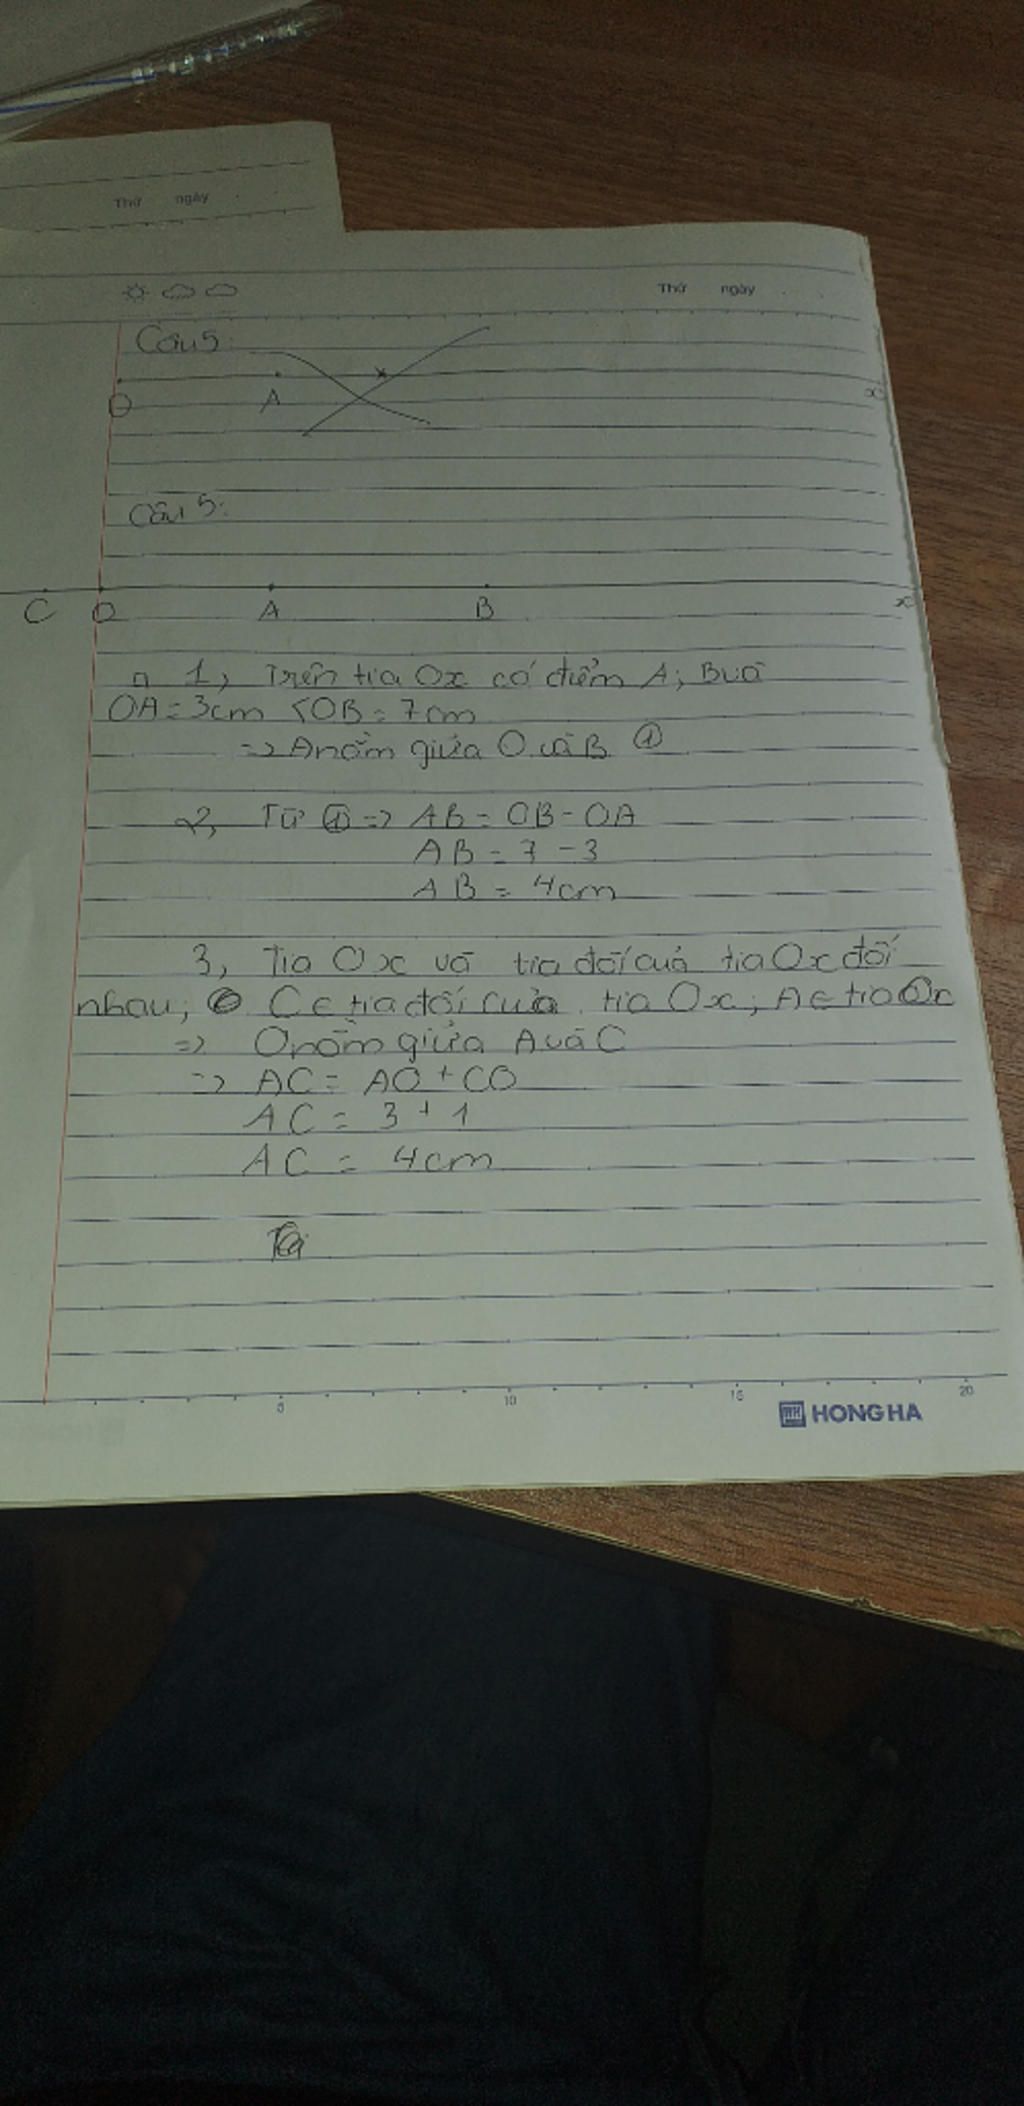 Thứ ngày
Thứ ngày
Câu 5:
O A x
Câu 5:
C O A B x
1, Trên tia Ox có điểm A; B và
OA = 3cm < OB = 7cm
=> A nằm giữa O và B ①
2, Từ ① => AB = OB - OA
AB = 7 - 3
AB = 4cm
3, Tia Ox và tia đối của tia Ox đối
nhau; C ∈ tia đối của tia Ox; A ∈ tia Ox
=> O nằm giữa A và C
=> AC = AO + CO
AC = 3 + 1
AC = 4cm
5 10 15 20
HONG HA